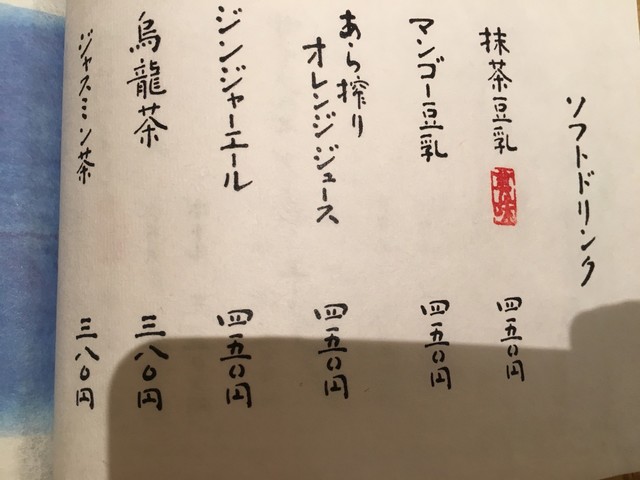 ソフトドリンク
抹茶豆乳
四五0円
マンゴー豆乳
四五0円
あら搾り
オレンジジュース
四五0円
ジンジャーエール
四五0円
烏龍茶
三八0円
ジャスミン茶
三八0円